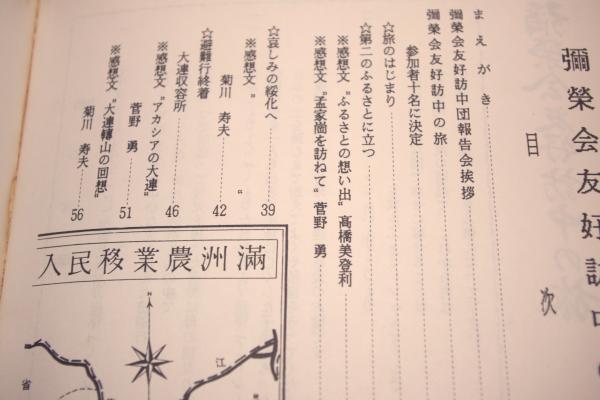 彌榮会友好訪中の
目次
まえがき
彌榮会友好訪中団報告会挨拶
彌榮会友好訪中の旅
参加者十名に決定
☆旅のはじまり
☆第二のふるさとに立つ
※感想文 "ふるさとの想い出" 髙橋美登利
※感想文 "孟家崗を訪ねて" 菅野 勇
☆哀しみの綏化へ 39
※感想文 " "
菊川 寿夫 42
☆避難行終着
大連収容所 46
※感想文 "アカシアの大連"
菅野 勇 51
※感想文 "大連轉山の回想"
菊川 寿夫 56
滿洲農業移民入
江
省
N